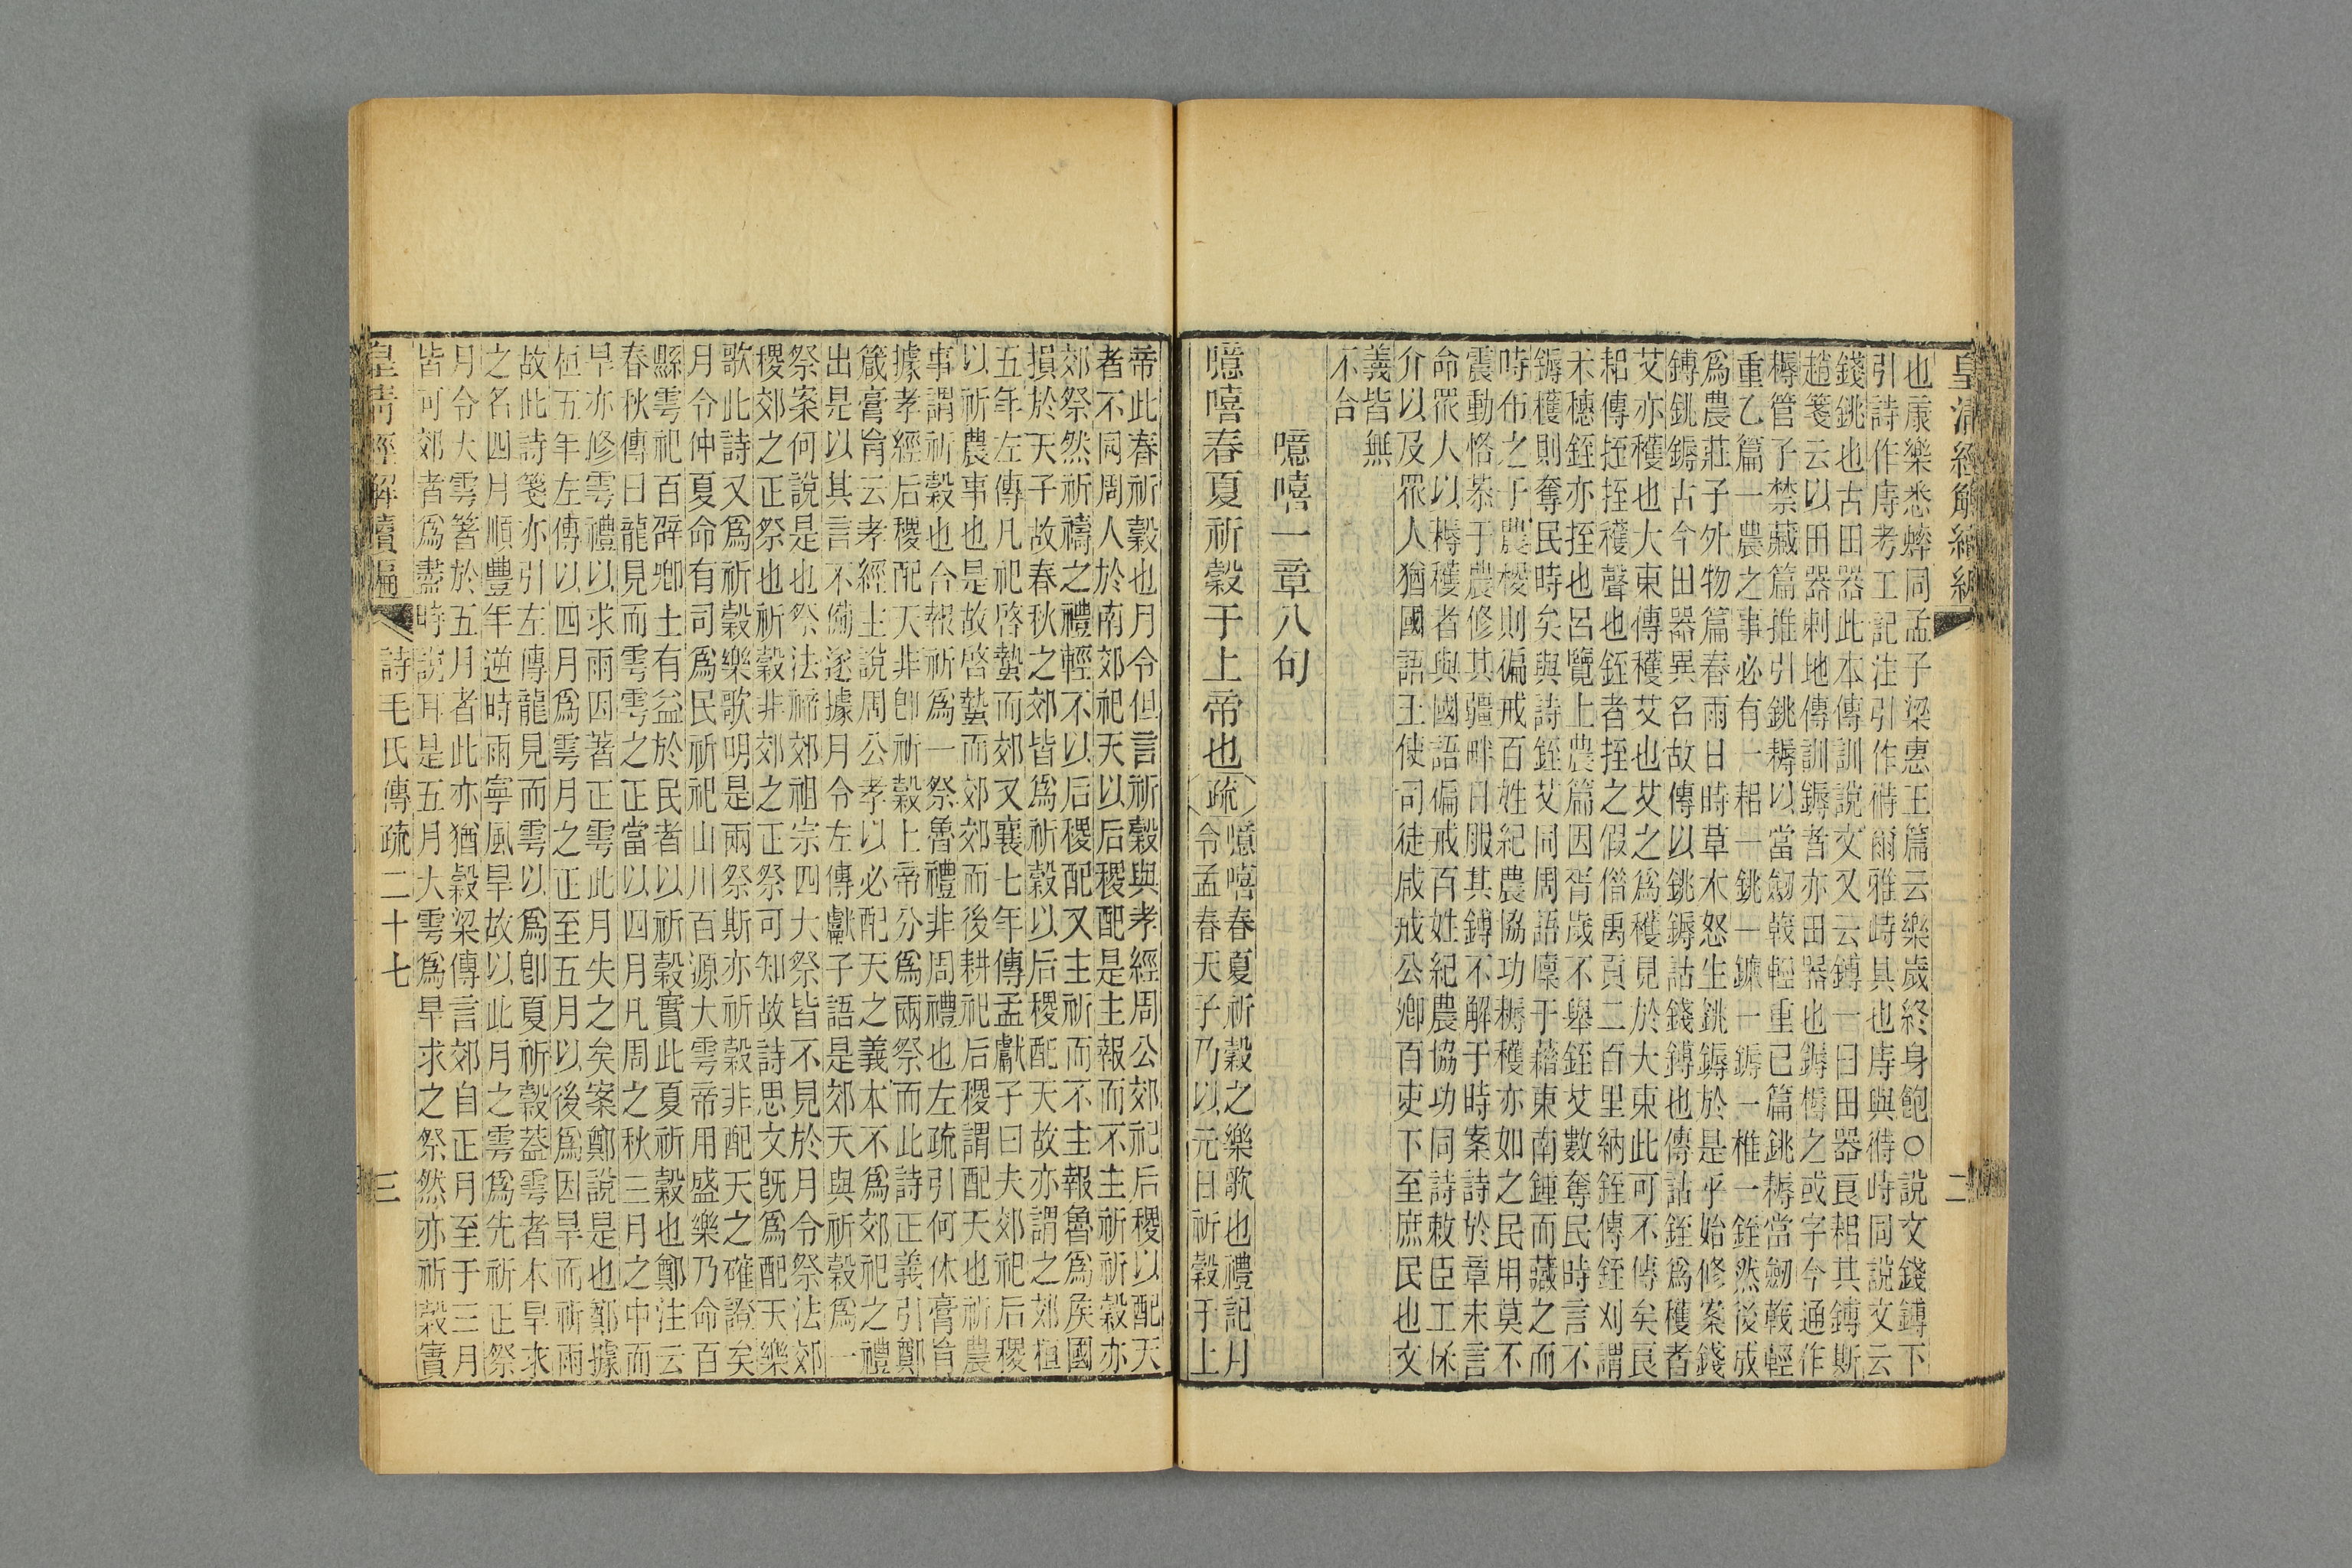 皇清經解續編
二
也康樂悉蟀同孟子梁惠王篇云樂歲終身飽○說文錢鎛下
引詩作庤考工記注引作偫爾雅峙具也庤與偫峙同說文云
錢銚也古田器此本傳訓說文又云鎛一曰田器良耜其鎛斯
趙箋云以田器刺地傳訓鎒者亦田器也鎒槈之或字今通作
耨管子禁藏篇推引銚耨以當劒戟輕重已篇銚耨當劒戟輕
重乙篇一農之事必有一耜一銚一鐮一鎒一椎一銍然後成
爲農莊子外物篇春雨日時草木怒生銚鎒於是乎始修案錢
鎛銚鎒古今田器異名故傳以銚鎒詁錢鎛也傳詁銍爲穫者
艾亦穫也大東傳穫艾也艾之爲穫見於大東此可不傳矣良
耜傳挃挃穫聲也銍者挃之假借禹貢二百里納銍傳銍刈謂
禾穗銍亦挃也呂覽上農篇因胥歲不舉銍艾數奪民時言不
鎒穫則奪民時矣與詩銍艾同周語廩于藉東南鍾而藏之而
時布之于農稷則徧戒百姓紀農協功耨穫亦如之民用莫不
震動恪恭于農修其疆畔日服其鎛不解于時案詩於章末言
命眾人以耨穫者與國語徧戒百姓紀農協功同詩敕臣工保
介以及眾人猶國語王使司徒咸戒公卿百吏下至庶民也文
義皆無
不合
噫嘻一章八句
噫嘻春夏祈穀于上帝也
疏
噫嘻春夏祈穀之樂歌也禮記月
令孟春天子乃以元日祈穀于上
帝此春祈穀也月令但言祈穀與孝經周公郊祀后稷以配天
者不同周人於南郊祀天以后稷配是主報而不主祈祈穀亦
郊祭然祈禱之禮輕不以后稷配又主祈而不主報魯爲侯國
損於天子故春秋之郊皆爲祈穀以后稷配天故亦謂之郊桓
五年左傳凡祀啓蟄而郊又襄七年傳孟獻子曰夫郊祀后稷
以祈農事也是故啓蟄而郊郊而後耕祀后稷謂配天也祈農
事謂祈穀也合報祈爲一祭魯禮非周禮也左疏引何休膏肓
據孝經后稷配天非卽祈穀上帝分爲兩祭而此詩正義引鄭
箴膏肓云孝經主說周公孝以必配天之義本不爲郊祀之禮
出是以其言不備遂據月令左傳獻子語是郊天與祈穀爲一
祭案何說是也祭法禘郊祖宗四大祭皆不見於月令祭法郊
稷郊之正祭也祈穀非郊之正祭可知故詩思文旣爲配天樂
歌此詩又爲祈穀樂歌明是兩祭斯亦祈穀非配天之確證矣
月令仲夏命有司爲民祈祀山川百源大雩帝用盛樂乃命百
縣雩祀百辟卿士有益於民者以祈穀實此夏祈穀也鄭注云
春秋傳曰龍見而雩雩之正當以四月凡周之秋三月之中而
旱亦修雩禮以求雨因著正雩此月失之矣案鄭說是也鄭據
桓五年左傳以四月爲雩月之正至五月以後爲因旱而祈雨
故此詩箋亦引左傳龍見而雩以爲卽夏祈穀蓋雩者本旱求
之名四月順豐年逆時雨寧風旱故以此月之雩爲先祈正祭
月令大雩箸於五月者此亦猶穀梁傳言郊自正月至于三月
皆可郊者爲盡時說耳是五月大雩爲旱求之祭然亦祈穀實
皇清經解續編
詩毛氏傳疏二十七
三